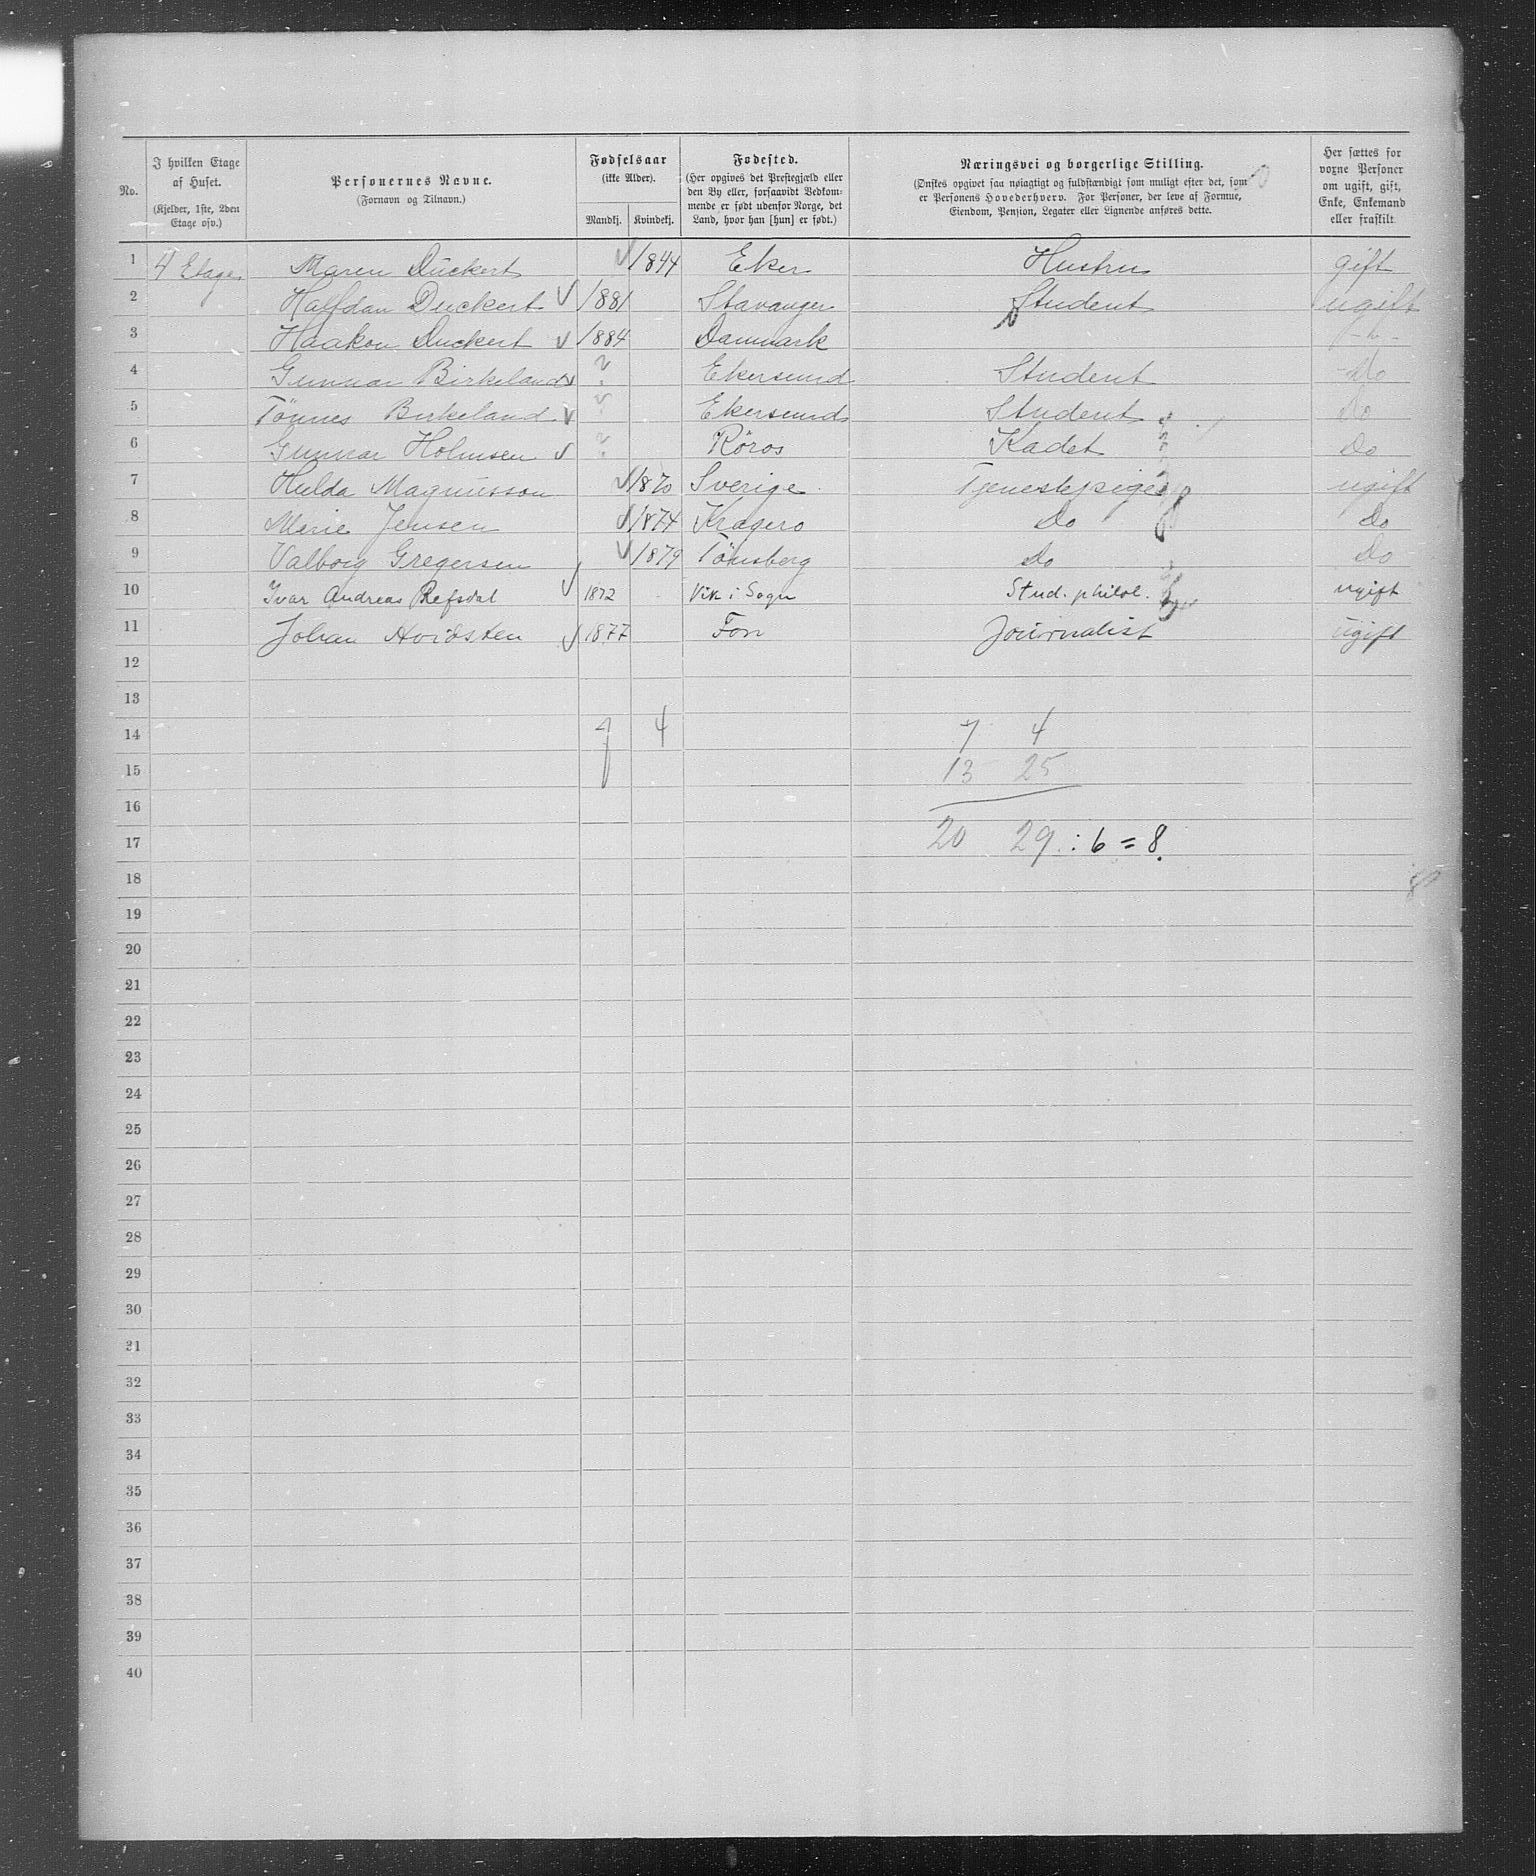 No.
I hvilken Etage af Huset. (Kjelder, 1ste, 2den Etage osv.)
Personernes Navne. (Fornavn og Tilnavn.)
Fødselsaar (ikke Alder). Mandkj. Kvindekj.
Fødested. (Her opgives det Prestegjæld eller den By eller, forsaavidt Vedkommende er født udenfor Norge, det Land, hvor han [hun] er født.)
Næringsvei og borgerlige Stilling. (Ønskes opgivet saa nøiagtigt og fuldstændigt som muligt efter det, som er Personens Hovederhverv. For Personer, der leve af Formue, Eiendom, Pension, Legater eller Lignende anføres dette.
Her sættes for voxne Personer om ugift, gift, Enke, Enkemand eller fraskilt
1 4 Etage Maren Duckert 1844 Eker Hustru gift
2 Halfdan Duckert 1881 Stavanger Student ugift
3 Haakon Duckert 1884 Danmark
4 Gunnar Birkeland ? Ekersund Student Do
5 Tönnes Birkeland ? Ekersund Student Do
6 Gunnar Holmsen ? Röros Kadet Do
7 Hulda Magnusson 1870 Sverige Tjenestepige ugift
8 Marie Jensen 1874 Kragerø Do Do
9 Valborg Gregersen 1879 Tönsberg Do Do
10 Ivar Andreas Refsdal 1872 Vik i Sogn Stud. philol. ugift
11 Johan Hvidsten 1877 Fon Journalist ugift
12
13
14 7 4 7 4
15 13 25
16
17 20 29 : 6 = 8.
18
19
20
21
22
23
24
25
26
27
28
29
30
31
32
33
34
35
36
37
38
39
40